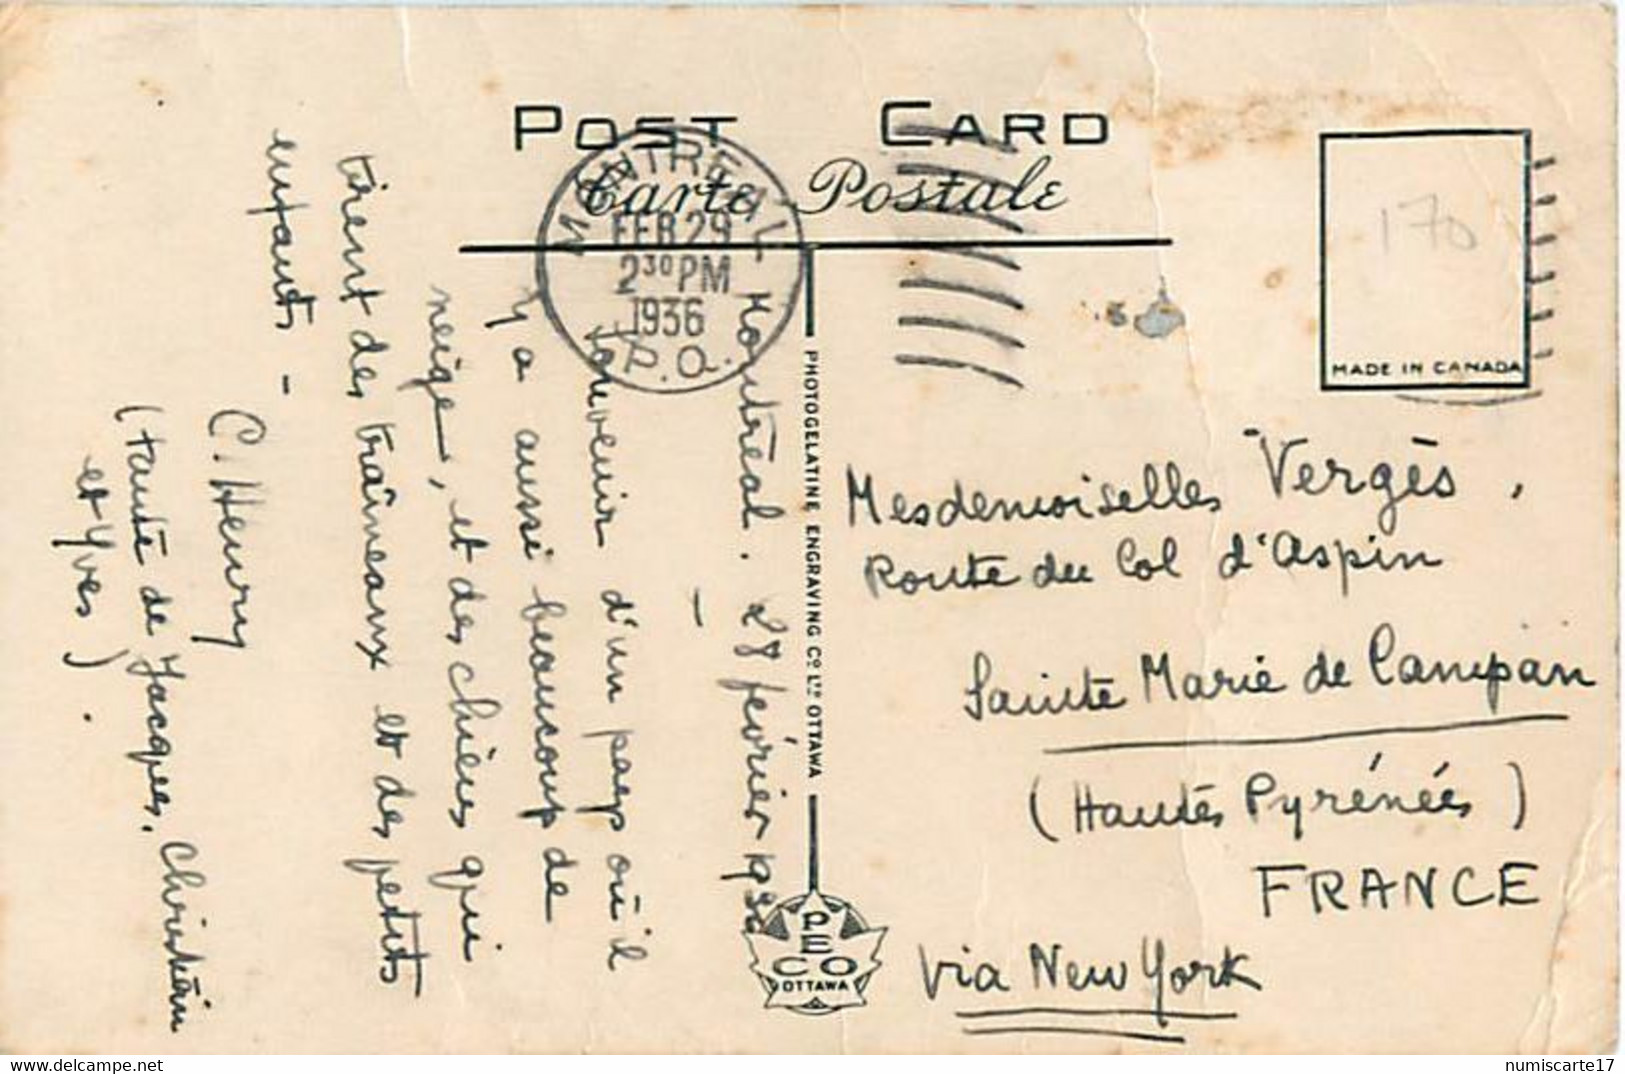 POST CARD
Carte Postale
MONTREAL
FEB 29
2³⁰ PM
1936
P.Q.
170
MADE IN CANADA
PHOTOGELATINE ENGRAVING Co LTD OTTAWA
PECO
OTTAWA
Montréal. 28 février 1936
–
Souvenir d'un pays où il
y a aussi beaucoup de
neige, et des chiens qui
tirent des traîneaux et des petits
enfants –
C. Henry
(tante de Jacques, Christian
et Yves).
Mesdemoiselles Vergès,
Route du Col d'Aspin
Sainte Marie de Campan
(Hautes Pyrénées)
FRANCE
Via New York
delcampe.net
numiscarte17